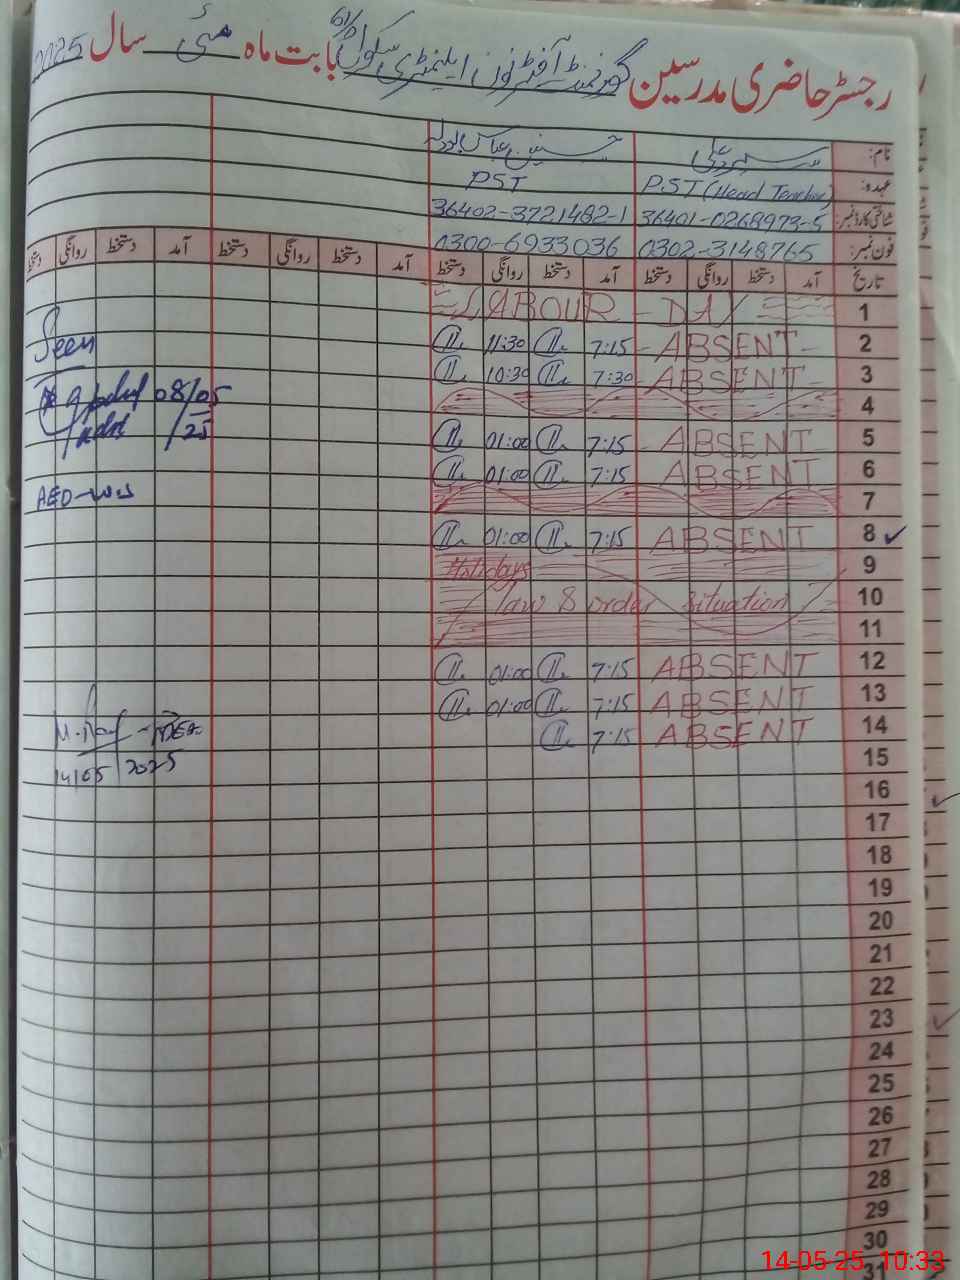 رجسٹر حاضری مدرسین گورنمنٹ آفٹر نون ایلیمنٹری سکول بابت ماہ مئی سال 2025
نام: حسنین عباس
عہدہ: PST (Head Teacher) PST
شناختی کارڈ نمبر: 36401-0268973-5 36402-3721482-1
فون نمبر: 0302-3148765 0300-6933036
تاریخ آمد دستخط روانگی دستخط آمد دستخط روانگی دستخط آمد دستخط روانگی دستخط آمد دستخط روانگی دستخط
1 LABOUR - DAY
2 - ABSENT - 7:15 11:30
3 - ABSENT - 7:30 10:30
4
5 - ABSENT 7:15 01:00
6 ABSENT 7:15 01:00
7
8 ABSENT 7:15 01:00
9 Holidays
10 law & order situation
11
12 ABSENT 7:15 01:00
13 ABSENT 7:15 01:00
14 ABSENT 7:15
15
16
17
18
19
20
21
22
23
24
25
26
27
28
29
30
31
Seen
08/05
/25
AEO
14/05/2025
14-05-25 10:33